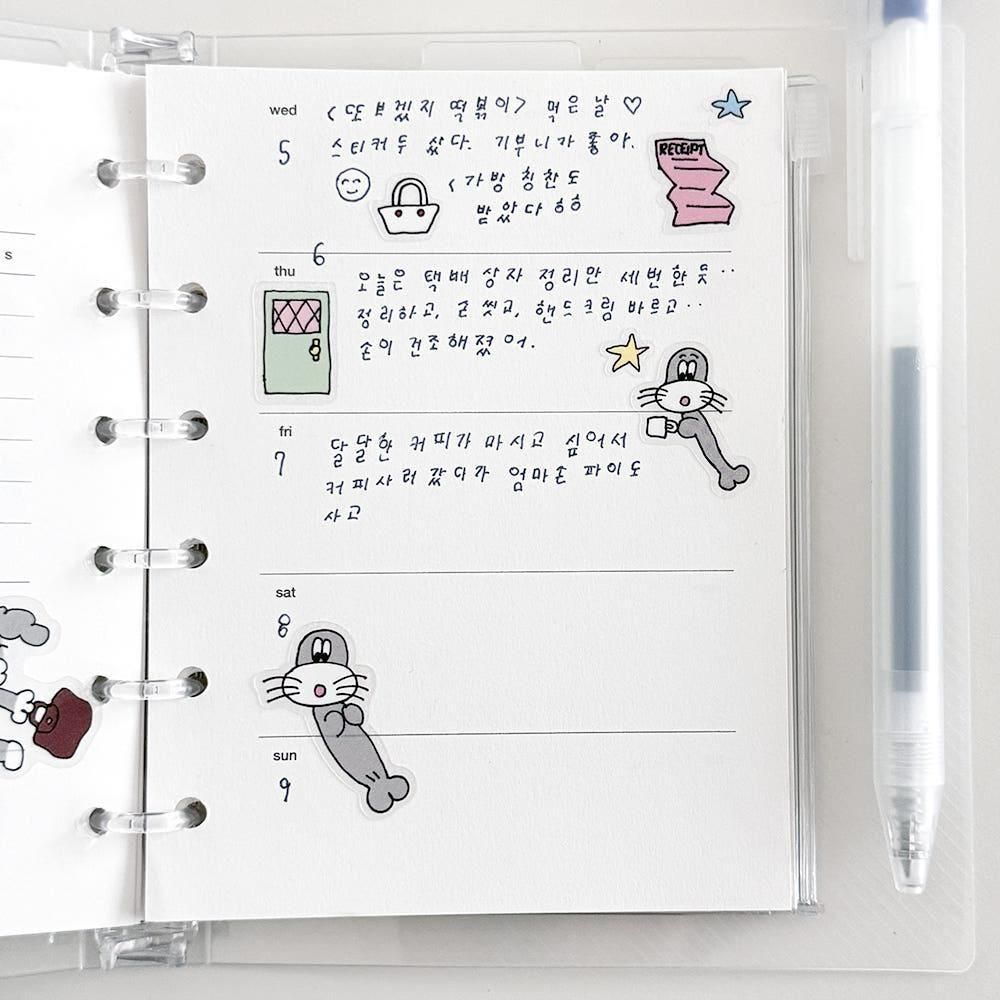 s
wed
<또보겠지 떡볶이> 먹은 날 ♡
5
스티커두 샀다. 기부니가 좋아.
RECEIPT
<가방 칭찬도
받았다 ㅎㅎ
6
thu
오늘은 택배 상자 정리만 세번한 듯..
정리하고, 손 씻고, 핸드크림 바르고..
손이 건조해졌어.
fri
7
달달한 커피가 마시고 싶어서
커피사러 갔다가 엄마손 파이도
사고
sat
8
sun
9